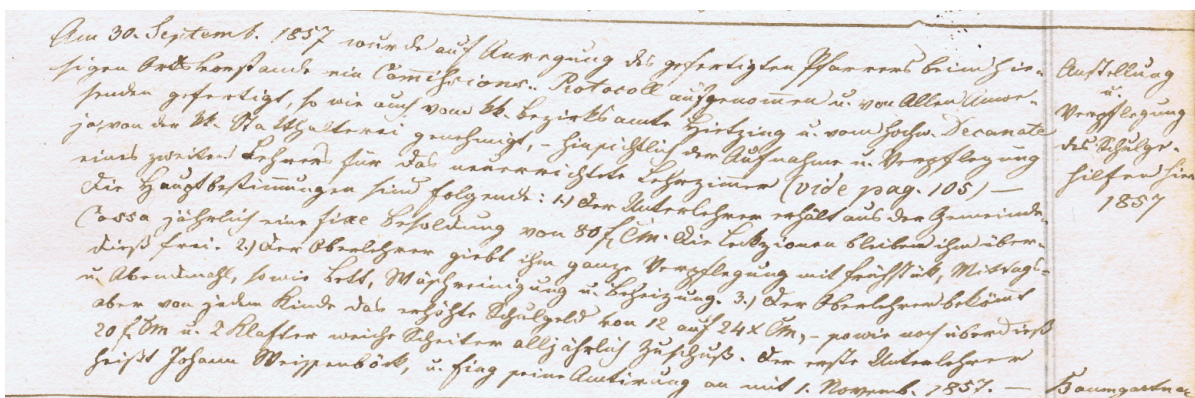 Am 30. Septemb. 1857 wurde auf Anregung des gefertigten Pfarrers beim hie-
sigen Ortsvorstande ein Commissions-Protocoll aufgenommen u. von Allen Anwe-
senden gefertigt, so wie auch vom kk. Bezirksamte Hietzing u. vom hochw. Decanate
ja von der kk. Statthalterei genehmigt, – hinsichtlich der Aufnahme u. Verpflegung
eines zweiten Lehrers für das neuerrichtete Lehrzimmer (vide pag. 105) –
Die Hauptbestimmungen sind folgende: 1.) Der Unterlehrer erhält aus der Gemeinde-
Cassa jährlich eine fixe Besoldung von 80 f CM. Die Lectzionen bleiben ihm über-
dieß frei. 2.) Der Oberlehrer giebt ihm ganze Verpflegung mit Frühstük, Mittags-
u. Abendmahl, sowie Bett, Wäschreinigung u. Beheizung. 3.) Der Oberlehrer bekömmt
aber von jedem Kinde das erhöhte Schulgeld von 12 auf 24 x CM, – sowie noch überdieß
20 f CM u. 2 Klafter weiche Scheiter alljährlich Zuschuß. Der erste Unterlehrer
heißt Johann Weissenböck, u. fing seine Amtirung an mit 1. Novemb. 1857. –
Anstellung
u.
Verpflegung
des Schulge-
hilfen hier
1857
Baumgartner